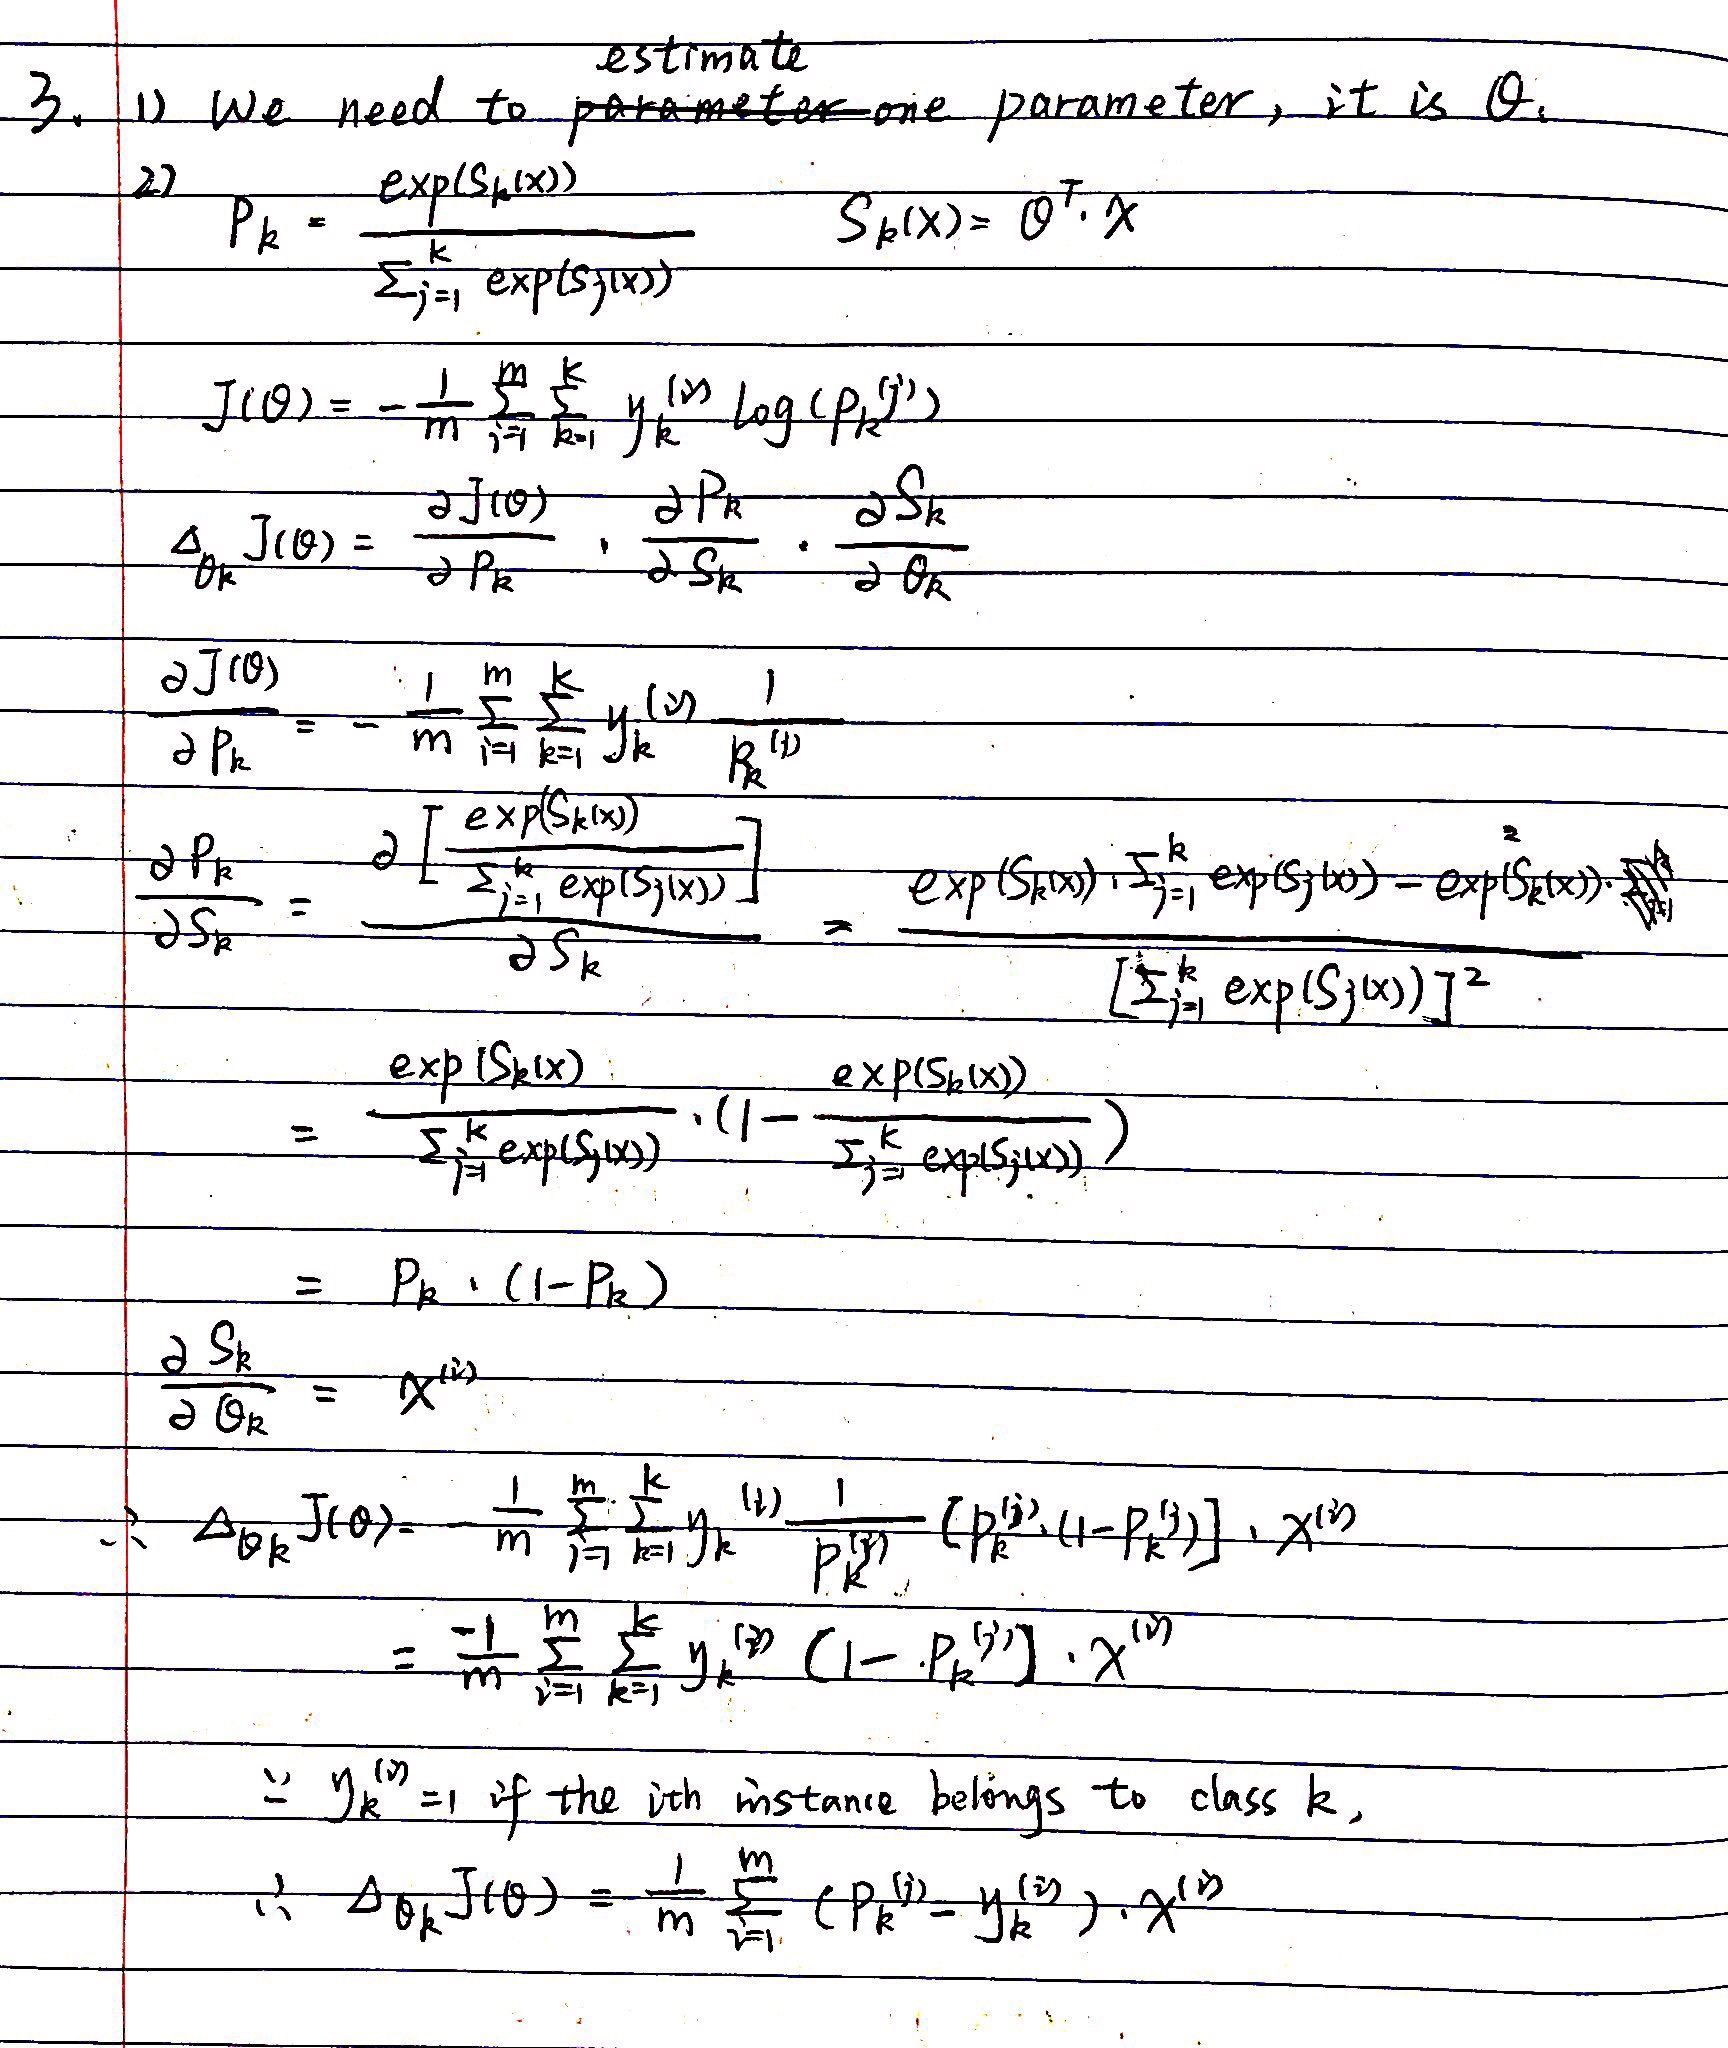 estimate
3. 1) We need to parameter one parameter, it is θ.
2) P_k = exp(S_k(x)) / Σ_{j=1}^k exp(S_j(x))    S_k(x) = θ^T · x
J(θ) = - 1/m Σ_{i=1}^m Σ_{k=1}^k y_k^(i) log(P_k^(i))
Δ_{θk} J(θ) = ∂J(θ)/∂P_k · ∂P_k/∂S_k · ∂S_k/∂θ_k
∂J(θ)/∂P_k = - 1/m Σ_{i=1}^m Σ_{k=1}^k y_k^(i) 1/P_k^(i)
∂P_k/∂S_k = ∂[exp(S_k(x)) / Σ_{j=1}^k exp(S_j(x))] / ∂S_k = exp(S_k(x)) · Σ_{j=1}^k exp(S_j(x)) - exp^2(S_k(x)) · / [Σ_{j=1}^k exp(S_j(x))]^2
= exp(S_k(x) / Σ_{j=1}^k exp(S_j(x)) · (1 - exp(S_k(x)) / Σ_{j=1}^k exp(S_j(x)))
= P_k · (1-P_k)
∂S_k/∂θ_k = x^(i)
∴ Δ_{θk} J(θ) = - 1/m Σ_{i=1}^m Σ_{k=1}^k y_k^(i) 1/P_k^(i) [P_k^(i) · (1-P_k^(i))] · x^(i)
= -1/m Σ_{i=1}^m Σ_{k=1}^k y_k^(i) (1- P_k^(i)] · x^(i)
∵ y_k^(i) = 1 if the ith instance belongs to class k,
∴ Δ_{θk} J(θ) = 1/m Σ_{i=1}^m (P_k^(i) - y_k^(i)) · x^(i)